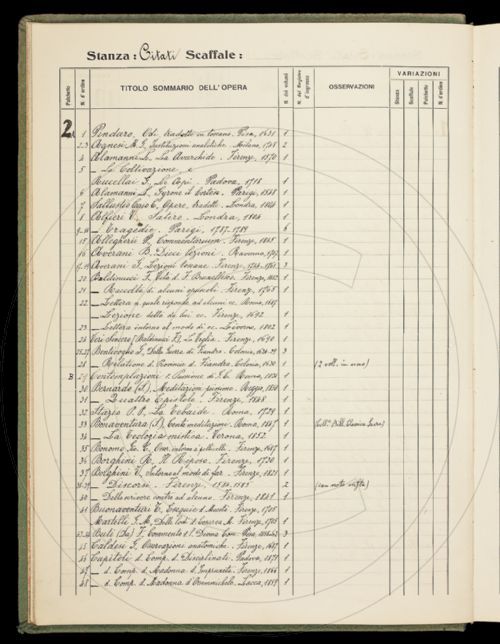 Stanza: Citati Scaffale:
Palchetto N. d'ordine TITOLO SOMMARIO DELL'OPERA N. dei volumi N. del Registro d'ingresso OSSERVAZIONI VARIAZIONI
Stanza Scaffale Palchetto N. d'ordine
2.
1 Pindaro, Odi tradotte in toscano. Pisa, 1631 1
2.3 Agnesi M. G., Instituzioni analitiche. Milano, 1748 2
4 Alamanni L., La Avarchide. Firenze, 1570 1
5 — La Coltivazione, e
Rucellai G., Le Api. Padova, 1718 1
6 Alamanni L., Gyrone il Cortese. Parigi, 1548 1
7 Sallustio Crispo C., Opere, tradotte. Londra, 1804 1
8 Alfieri V., Satire. Londra, 1804 1
9-14 — Tragedie. Parigi, 1787-1789 6
15 Allegherii P., Commentarium. Firenze, 1845 1
16 Averani B., Dieci lezioni. Ravenna, 1707 1
17-19 Averani G., Lezioni toscane. Firenze, 1744-1761 3
20 Baldinucci F., Vita di F. Brunelleschi. Firenze, 1812 1
21 — Raccolta di alcuni opuscoli. Firenze, 1765 1
22 — Lettera a quale risponde ad alcuni ec. Roma, 1687
— Lezione detta da lui ec. Firenze, 1692 1
23 — Lettera intorno al modo di ec. Livorno, 1802 1
24 Veri Sincero (Baldinucci F.), La Veglia. Firenze, 1690 1
25-27 Bentivoglio G., Della Guerra di Fiandra. Colonia, 1634-39 3
28 — Relatione d. Provincie d. Fiandra. Colonia, 1630 1 (2 voll. in uno)
B 29 Contemplazioni s. Passione di G. C. Roma, 1834 1
30 Bernardo (S.), Meditazioni piissime. Reggio, 1850 1
31 — Quattro Epistole. Firenze, 1848 1
32 Stazio P. P., La Tebaide. Roma, 1729 1
33 Bonaventura (S.), Cento meditazioni. Roma, 1847 1
34 — La Teologia mistica. Verona, 1852 1
35 Bonomo Gio. C., Osser. intorno a' pellicelli. Firenze, 1687 1
36 Borghini R., Il Riposo. Firenze, 1730 1
37 Borghini V., Selene al modo di far. Firenze, 1821 1
38-39 — Discorsi. Firenze, 1584-1585 2
40 — Dello scrivere contro ad alcuno. Firenze, 1841 1
41 Buonaventuri T., Esequie d. Firenze, 1705
Martelli G. M., Delle lodi d. Cosimo Firenze, 1705 1
42-44 Buti (Da) F., Commento s. l. Divina Com. Pisa, 1858-62 3
45 Caldesi G., Osservazioni anatomiche. Firenze, 1687 1
46 Capitoli d. Comp. d. Disciplinati. Padova, 1871 1
47 — d. Comp. d. Madonna d. Impruneta. Firenze, 1866 1
48 — d. Comp. d. Madonna d'Orsanmichele. Lucca, 1859 1